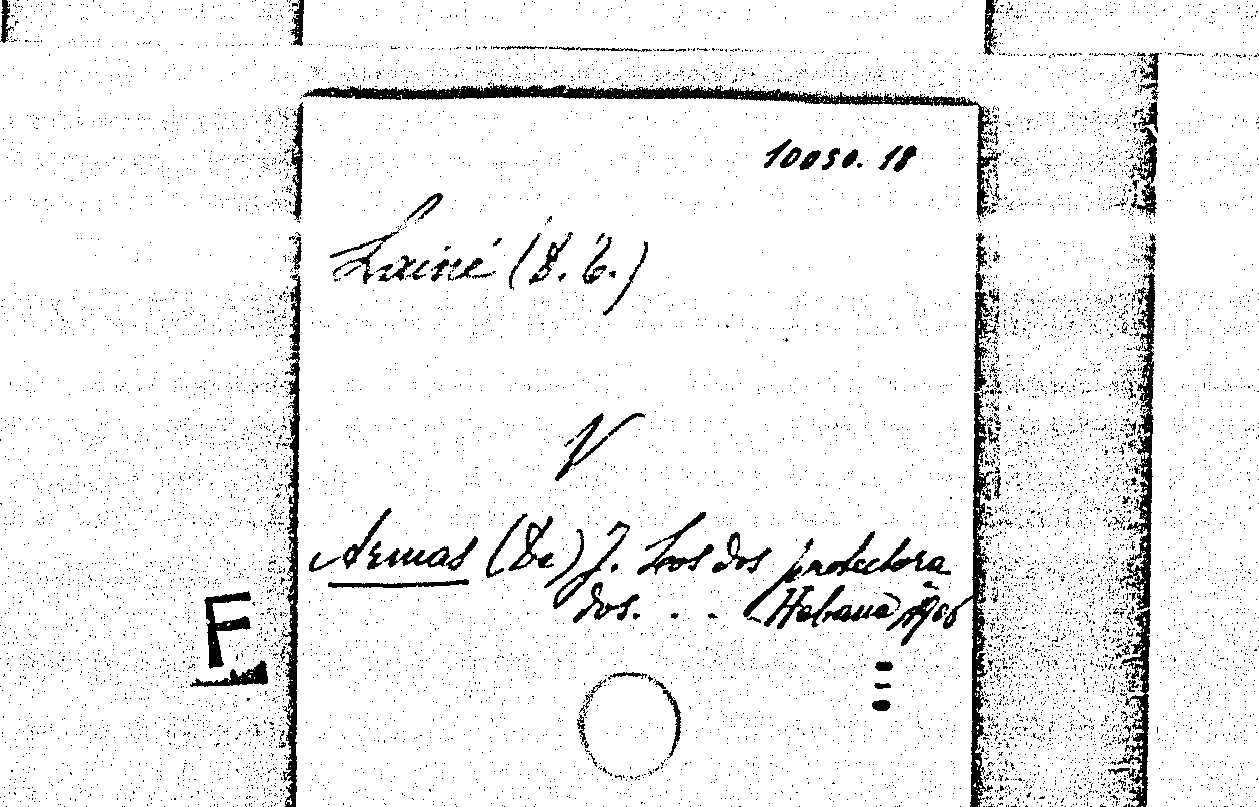 10050. 18
Lainé (D. E.)
V
Armas (De) J. Los dos protectora
dos. . . Habana, 1906
F